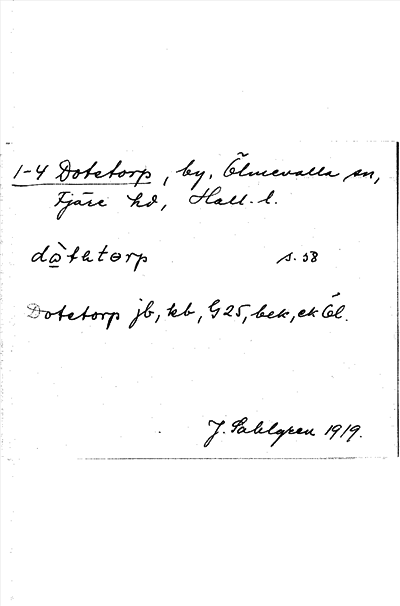 1-4 Dotetorp, by, Ölmevalla sn,
Fjäre hd, Hall. l.
dò̲tatɵrp s. 58
Dotetorp jb, kb, G25, bek, ek Öl.
J. Sahlgren 1919.